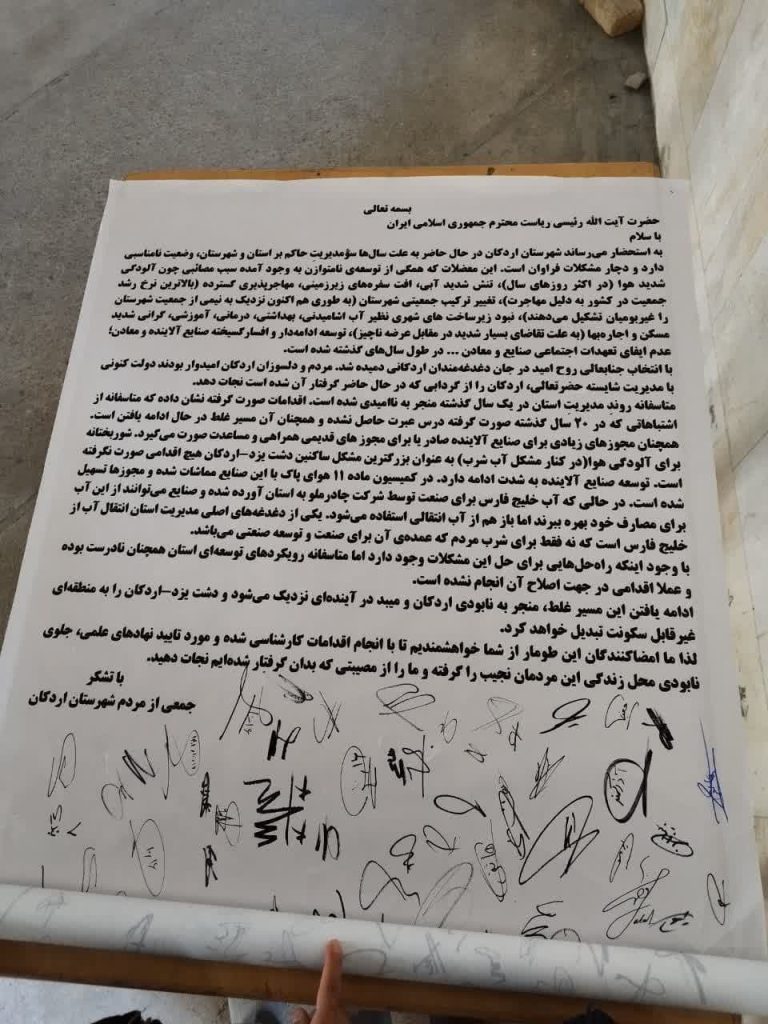 بسمه تعالی
حضرت آیت الله رئیسی ریاست محترم جمهوری اسلامی ایران
با سلام
به استحضار می‌رساند شهرستان اردکان در حال حاضر به علت سال‌ها سؤمدیریت حاکم بر استان و شهرستان، وضعیت نامناسبی
دارد و دچار مشکلات فراوان است. این معضلات که همگی از توسعه‌ی نامتوازن به وجود آمده سبب مصائبی چون آلودگی
شدید هوا (در اکثر روزهای سال)، تنش شدید آبی، افت سفره‌های زیرزمینی، مهاجرپذیری گسترده (بالاترین نرخ رشد
جمعیت در کشور به دلیل مهاجرت)، تغییر ترکیب جمعیتی شهرستان (به طوری هم اکنون نزدیک به نیمی از جمعیت شهرستان
را غیربومیان تشکیل می‌دهند)، نبود زیرساخت های شهری نظیر آب اشامیدنی، بهداشتی، درمانی، آموزشی، گرانی شدید
مسکن و اجاره‌بها (به علت تقاضای بسیار شدید در مقابل عرضه ناچیز)، توسعه ادامه‌دار و افسارگسیخته صنایع آلاینده و معادن؛
عدم ایفای تعهدات اجتماعی صنایع و معادن ... در طول سال‌های گذشته شده است.
با انتخاب جنابعالی روح امید در جان دغدغه‌مندان اردکانی دمیده شد. مردم و دلسوزان اردکان امیدوار بودند دولت کنونی
با مدیریت شایسته حضرتعالی، اردکان را از گردابی که در حال حاضر گرفتار آن شده است نجات دهد.
متاسفانه روندِ مدیریت استان در یک سال گذشته منجر به ناامیدی شده است. اقدامات صورت گرفته نشان داده که متاسفانه از
اشتباهاتی که در ۲۰ سال گذشته صورت گرفته درس عبرت حاصل نشده و همچنان آن مسیر غلط در حال ادامه یافتن است.
همچنان مجوزهای زیادی برای صنایع آلاینده صادر یا برای مجوز های قدیمی همراهی و مساعدت صورت می‌گیرد. شوربختانه
برای آلودگی هوا(در کنار مشکل آب شرب) به عنوان بزرگترین مشکل ساکنین دشت یزد-اردکان هیچ اقدامی صورت نگرفته
است. توسعه صنایع آلاینده به شدت ادامه دارد. در کمیسیون ماده ۱۱ هوای پاک با این صنایع مماشات شده و مجوزها تسهیل
شده است. در حالی که آب خلیج فارس برای صنعت توسط شرکت چادرملو به استان آورده شده و صنایع می‌توانند از این آب
برای مصارف خود بهره ببرند اما باز هم از آب انتقالی استفاده می‌شود. یکی از دغدغه‌های اصلی مدیریت استان انتقال آب از
خلیج فارس است که نه فقط برای شرب مردم که عمده‌ی آن برای صنعت و توسعه صنعتی می‌باشد.
با وجود اینکه راه‌حل‌هایی برای حل این مشکلات وجود دارد اما متاسفانه رویکردهای توسعه‌ای استان همچنان نادرست بوده
و عملا اقدامی در جهت اصلاح آن انجام نشده است.
ادامه یافتن این مسیر غلط، منجر به نابودی اردکان و میبد در آینده‌ای نزدیک می‌شود و دشت یزد-اردکان را به منطقه‌ای
غیرقابل سکونت تبدیل خواهد کرد.
لذا ما امضاکنندگان این طومار از شما خواهشمندیم تا با انجام اقدامات کارشناسی شده و مورد تایید نهادهای علمی، جلوی
نابودی محل زندگی این مردمان نجیب را گرفته و ما را از مصیبتی که بدان گرفتار شده‌ایم نجات دهید.
با تشکر
جمعی از مردم شهرستان اردکان